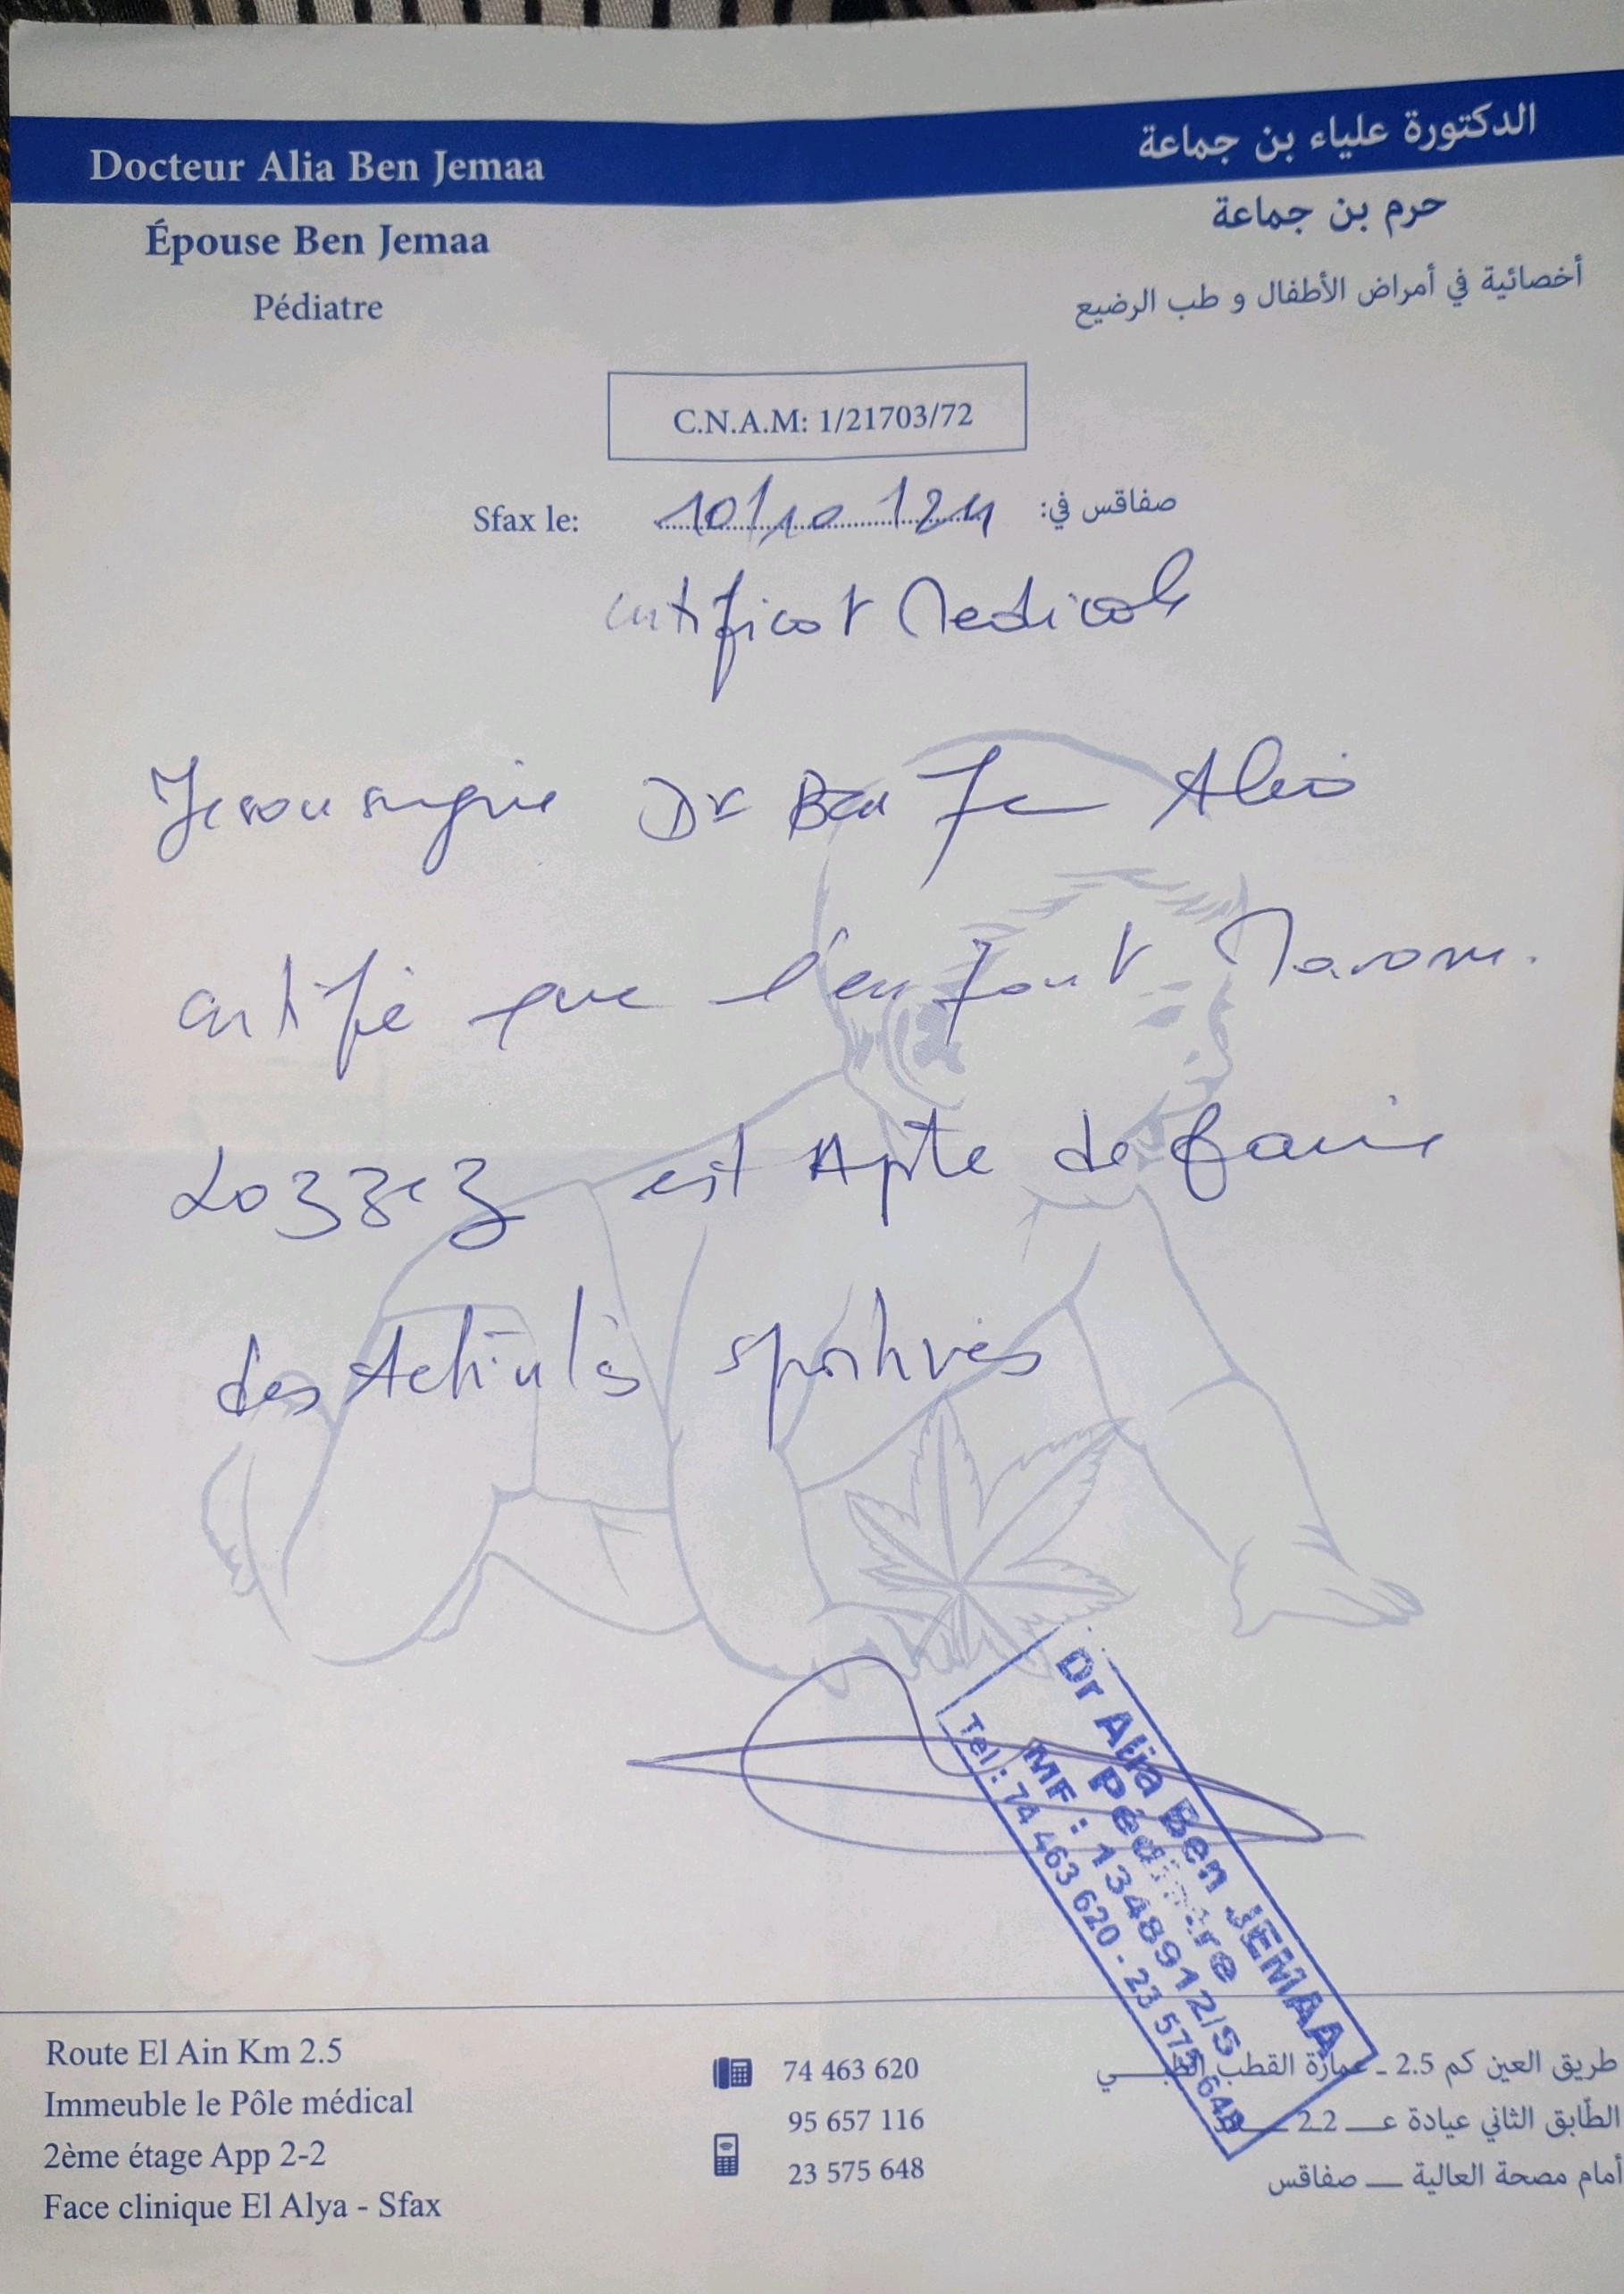 Docteur Alia Ben Jemaa
الدكتورة علياء بن جماعة
Épouse Ben Jemaa
حرم بن جماعة
Pédiatre
أخصائية في أمراض الأطفال و طب الرضيع
C.N.A.M: 1/21703/72
Sfax le: 10/10/24 صفاقس في:
certificat Medicale
Je soussigné Dr Ben Je Alia
certifie que l'enfant
est Apte de faire
des Activités sportives
Dr Alia Ben JEMAA
Pédiatre
MF : 1348912/S
Tel : 74 463 620 - 23 575 648
Route El Ain Km 2.5
Immeuble le Pôle médical
2ème étage App 2-2
Face clinique El Alya - Sfax
74 463 620
95 657 116
23 575 648
طريق العين كم 2.5 ـ عمارة القطب الطبي
الطّابق الثاني عيادة عـ 2.2 ـدد
أمام مصحة العالية ـ صفاقس